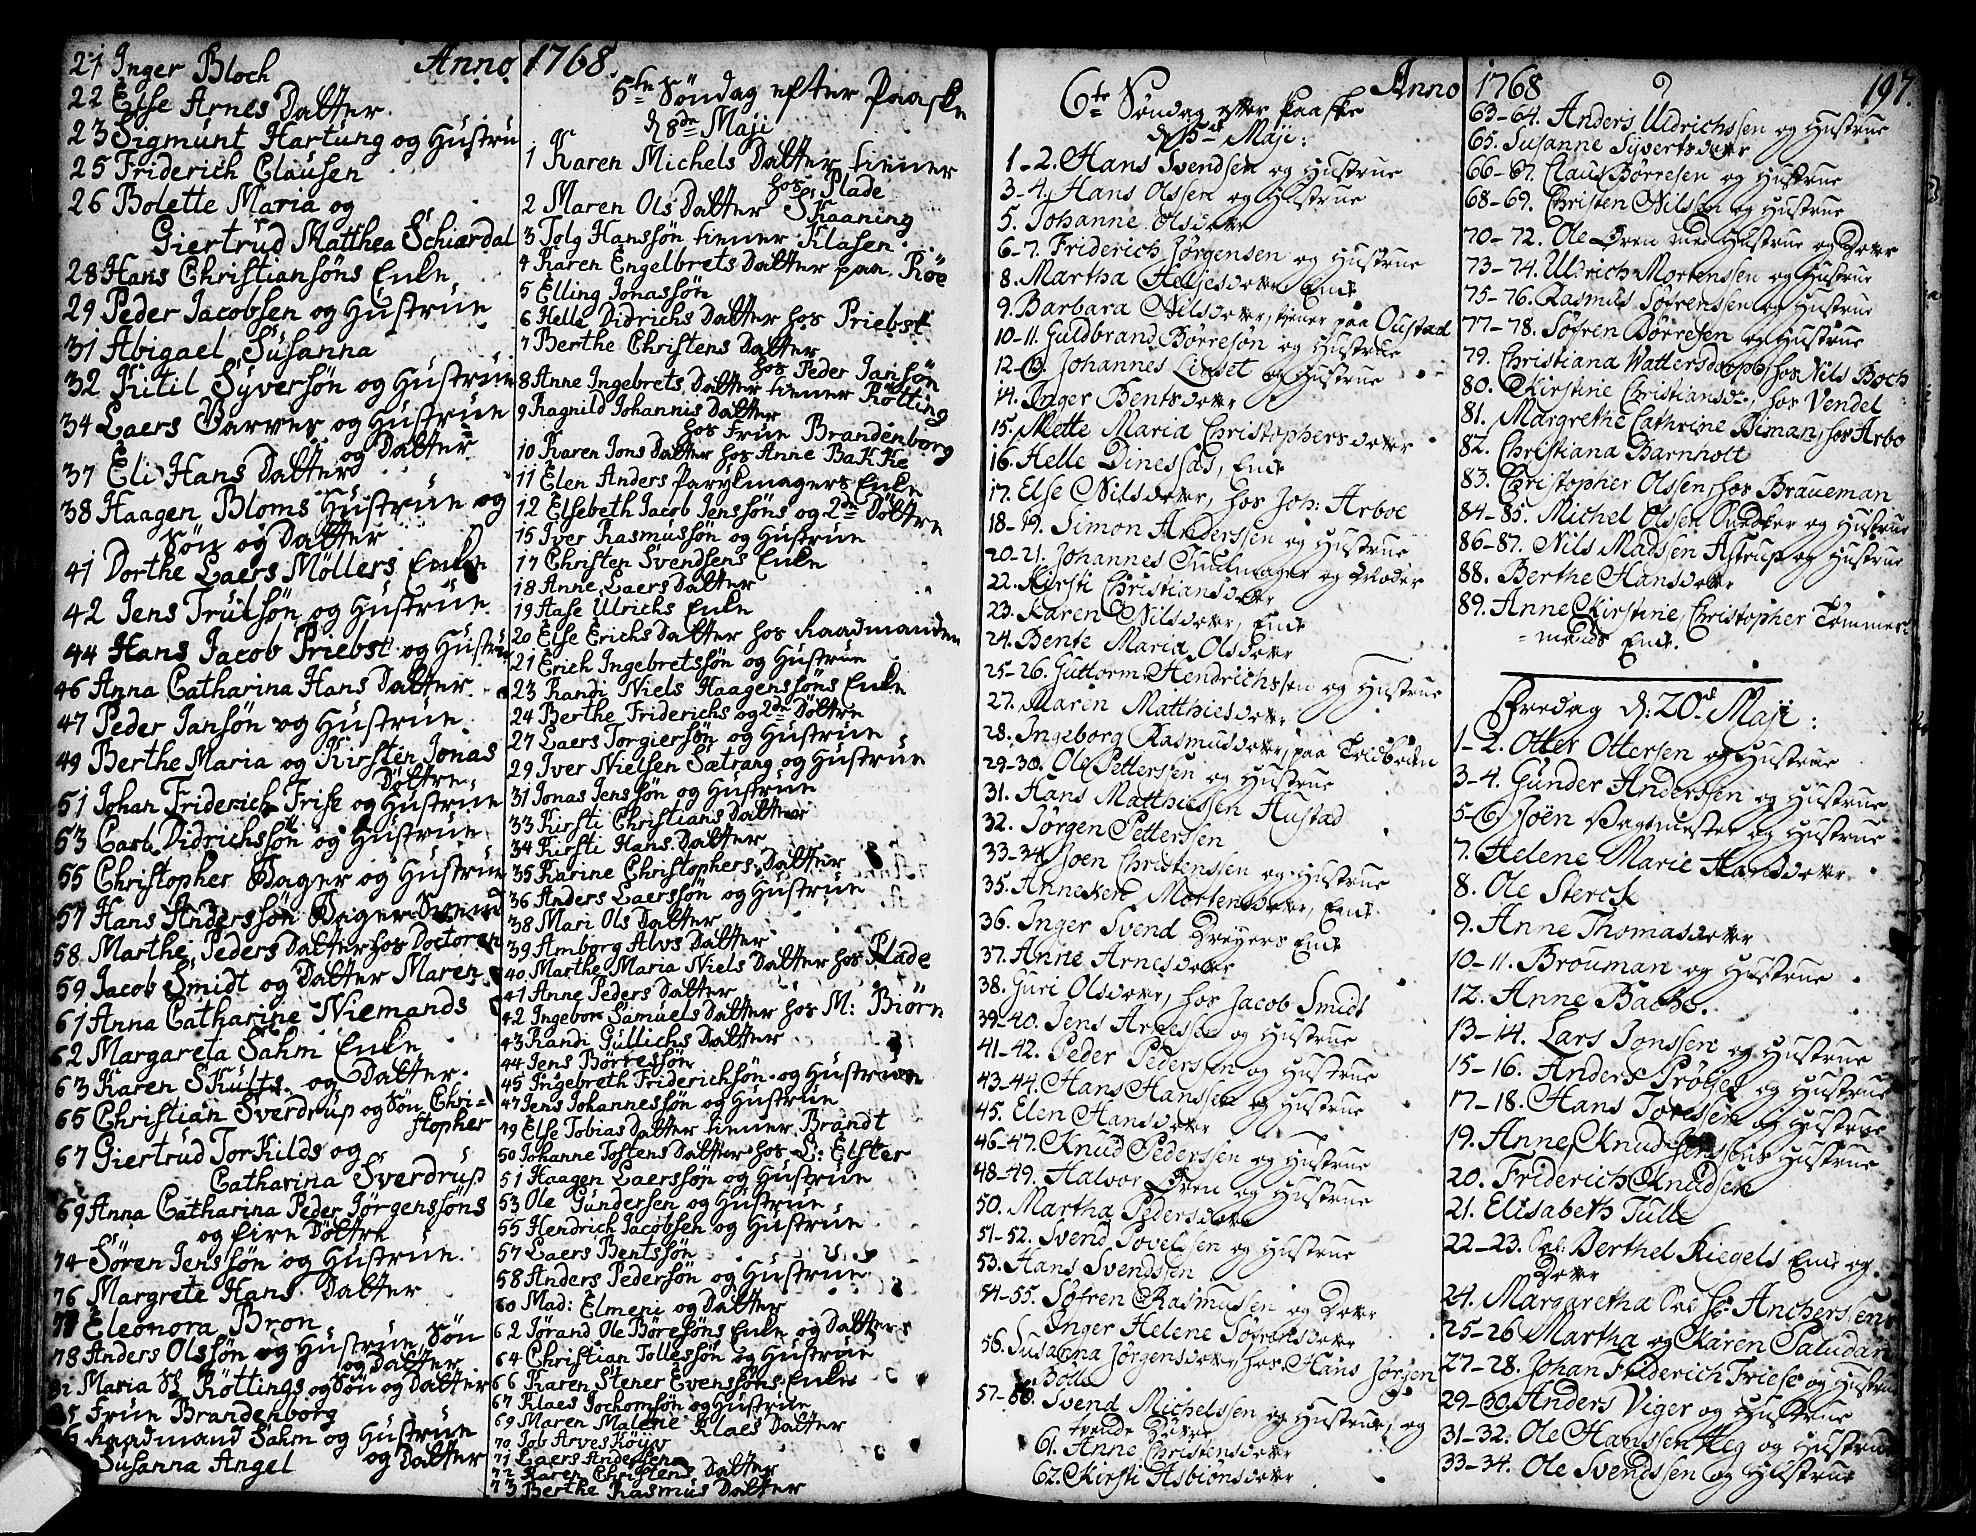 Anno 1768
21 Inger Bloch
22 Else Arnes Datter
23 Sigmunt Hartung og Hustru
25 Friderich Clausen
26 Bolette Maria og
Giertrud Matthea Schiærdal
28 Hans Christiansöns Enke
29 Peder Jacobsen og Hustrue
31 Abigael Susanna
32 Kitil Syversön og Hustrue
34 Laers Varves og Hustrue
og Datter
37 Eli Hans Datter
38 Haagen Bloms Hustrue og
Sön og Datter
41 Dorthe Laers Möllers Enke
42 Jens Trulsön og Hustrue
44 Hans Jacob Priebst og Hustrue
46 Anna Catharina Hans Datter
47 Peder Jansön og Hustrue
49 Berthe Maria og Kirsten Jonas
Döttre
51 Johan Friderich Frise og Hustrue
53 Carl Didrichssön og Hustrue
55 Christopher Bager og Hustrue
57 Hans Anderssön Bager Svend
58 Marthe Peders Datter hos Doctoren
59 Jacob Smidt og Datter Maren
61 Anna Catharine Niemands
62 Margareta Sahm Enke
63 Karen Skults og Datter
65 Christian Sverdrup og Sön Chri=
stopher
67 Giertrud Torkilds og
Catharina Sverdrup
69 Anna Catharina Peder Jörgensöns
og fire Döttre
74 Sören Jenssön og Hustrue
76 Margrete Hans Datter
77 Eleonora Bron
78 Anders Olssön og Hustrue Sön
og Datter
Maria Sl Röttings og Sön og Datter
Frue Brandenborg
Raadmand Sahm og Hustrue
og Datter
Susanna Angel
5te Söndag efter Paaske
d 8de Maji
1 Karen Michels Datter tiener
hos Plade
2 Maren Ols Datter Skaaning
3 Tolg Hanssön tiener Klasen
4 Karen Engelbrets Datter paa Röe
5 Elling Jonassön
6 Helle Didrichs Datter hos Priebst
7 Berthe Christens Datter
hos Peder Jansön
8 Anne Ingebrets Datter tiener Rötting
9 Ragnild Johannis Datter
hos Frue Brandenborg
10 Karen Jons Datter hos Anne Bakke
11 Elen Anders Parylmagers Enke
12 Elsebeth Jacob Jenssöns og 2de Döttre
15 Iver Rasmussön og Hustrue
17 Christen Svendsens Enke
18 Anne Laers Datter
19 Aase Ulrichs Enke
20 Else Erichs Datter hos Raadmanden
21 Erich Ingebretssön og Hustrue
23 Randi Niels Haagenssöns Enke
24 Berthe Friderichs og 2de Döttre
27 Laers Torgiersön og Hustrue
29 Iver Nielsen Sætrang og Hustrue
31 Jonas Jenssön og Hustrue
33 Kirsti Christians Datter
34 Kirsti Hans Datter
35 Karine Christophers Datter
36 Anders Laerssön og Hustrue
38 Mari Ols Datter
39 Amborg Alvs Datter
40 Marthe Maria Niels Datter hos Plade
41 Anne Peders Datter
42 Ingebor Samuels Datter hos M: Biörn
43 Randi Gullichs Datter
44 Jens Börressön
45 Ingebreth Friderichsön og Hustrue
47 Jens Johannessön og Hustrue
49 Else Tobias Datter tiener Brandt
50 Johanne Tostens Datter hos L: Elster
51 Haagen Laerssön og Hustrue
53 Ole Gundersen og Hustrue
55 Hendrich Jacobsen og Hustrue
57 Laers Bentssön
58 Anders Pedersön og Hustrue
60 Mad: Elmeni og Datter
62 Jörand Ole Böresöns Enke og Datter
64 Christian Tollessön og Hustrue
66 Karen Stener Evensöns Enke
67 Klaes Jochomsön og Hustrue
69 Maren Malene Klaes Datter
70 Job Arves Röyer
71 Laers Andersen
72 Karen Christens Datter
73 Berthe Rasmus Datter
Anno 1768
197.
6te Søndag efter Paaske
d. 15de Maji:
1-2. Hans Svendsen og Hustrue
3-4. Hans Olssen og Hustrue
5. Johanne Olsdotter
6-7. Friderich Jørgensen og Hustrue
8. Martha Heljesdotter Enke
9. Barbara Nilsdotter, tiener paa Oustad
10-11. Guldbrand Børresøn og Hustrue
12-13. Johannes Linset og Hustrue
14. Inger Bentsdotter
15. Mette Maria Christophersdotter
16. Helle Dinessas, Enke
17. Else Nilsdotter, hos Joh: Arboe
18-19. Simon Anderssen og Hustrue
20-21. Johannes Juulmager og Moder
22. Kirsti Christiansdotter
23. Karen Nilsdotter, Enke
24. Bente Maria Olsdotter
25-26. Guttorm Hendrichssen og Hustrue
27. Maren Matthiesdotter
28. Ingeborg Rasmusdotter, paa Toldboden
29-30. Ole Petterssen og Hustrue
31. Hans Matthiessen Hustad
32. Jørgen Petterssen
33-34. Joen Christenssen og Hustrue
35. Anneken Mortensdotter, Enke
36. Inger Svend Dreyers Enke
37. Anne Arnesdotter
38. Guri Olsdotter, hos Jacob Smidt
39-40. Jens Arnessen og Hustrue
41-42. Peder Pederssen og Hustrue
43-44. Hans Hanssen og Hustrue
45. Elen Hansdotter
46-47. Knud Pederssen og Hustrue
48-49. Halvor Øren og Hustrue
50. Martha Pedersdotter
51-52. Svend Povelssen og Hustrue
53. Hans Svendssen
54-55. Søfren Rasmussen og Dotter
Inger Helene Søfrensdotter
56. Susanna Jørgensdotter, hos Hans Jørjen
Bolle
57-60. Svend Michelssen og Hustrue, og
tvende Døtre
61. Anne Christensdotter
62. Kirsti Asbiønsdotter
63-64. Anders Uldrichssen og Hustrue
65. Susanne Syvertsdotter
66-67. Claus Børresen og Hustrue
68-69. Christen Nilssen og Hustrue
70-72. Ole Øren med Hustrue og Dotter
73-74. Uldrich Mortenssen og Hustrue
75-76. Rasmus Søfrenssen og Hustrue
77-78. Søfren Børresen og Hustrue
79. Christiana Wattersdorph, hos Nils Boch
80. Kirstine Christiansd., hos Vendel
81. Margrethe Cathrine Biman, hos Arbo
82. Christiana Barnholt
83. Christopher Olssen, hos Braueman
84-85. Michel Olssen og Hustrue
86-87. Nils Madssen Astrup og Hustrue
88. Berthe Hansdotter
89. Anne Kirstine, Christopher Tømmer-
=mands Enke.
Fredag d: 20de Maji:
1-2. Otter Ottersen og Hustrue
3-4. Gunder Anderssen og Hustrue
5-6. Joen Bagemester og Hustrue
7. Helene Marie Hansdotter
8. Ole Sterck
9. Anne Thomasdotter
10-11. Brouman og Hustrue
12. Anne Bache.
13-14. Lars Jonssen og Hustrue
15-16. Anders Prøtjes og Hustrue
17-18. Hans Toresen og Hustrue
19. Anne, Knud Jenssens Hustrue
20. Friderich Knudsen
21. Elisabeth Tulle
22-23. Berthel Riegels Enke og
Dotter
24. Margaretha Anchersens
25-26 Martha og Karen Paludan
27-28. Johan Friderich Friese og Hustrue
29-30. Anders Viger og Hustrue
31-32. Ole Hanssen Heg og Hustrue
33-34. Ole Svendssen og Hustrue